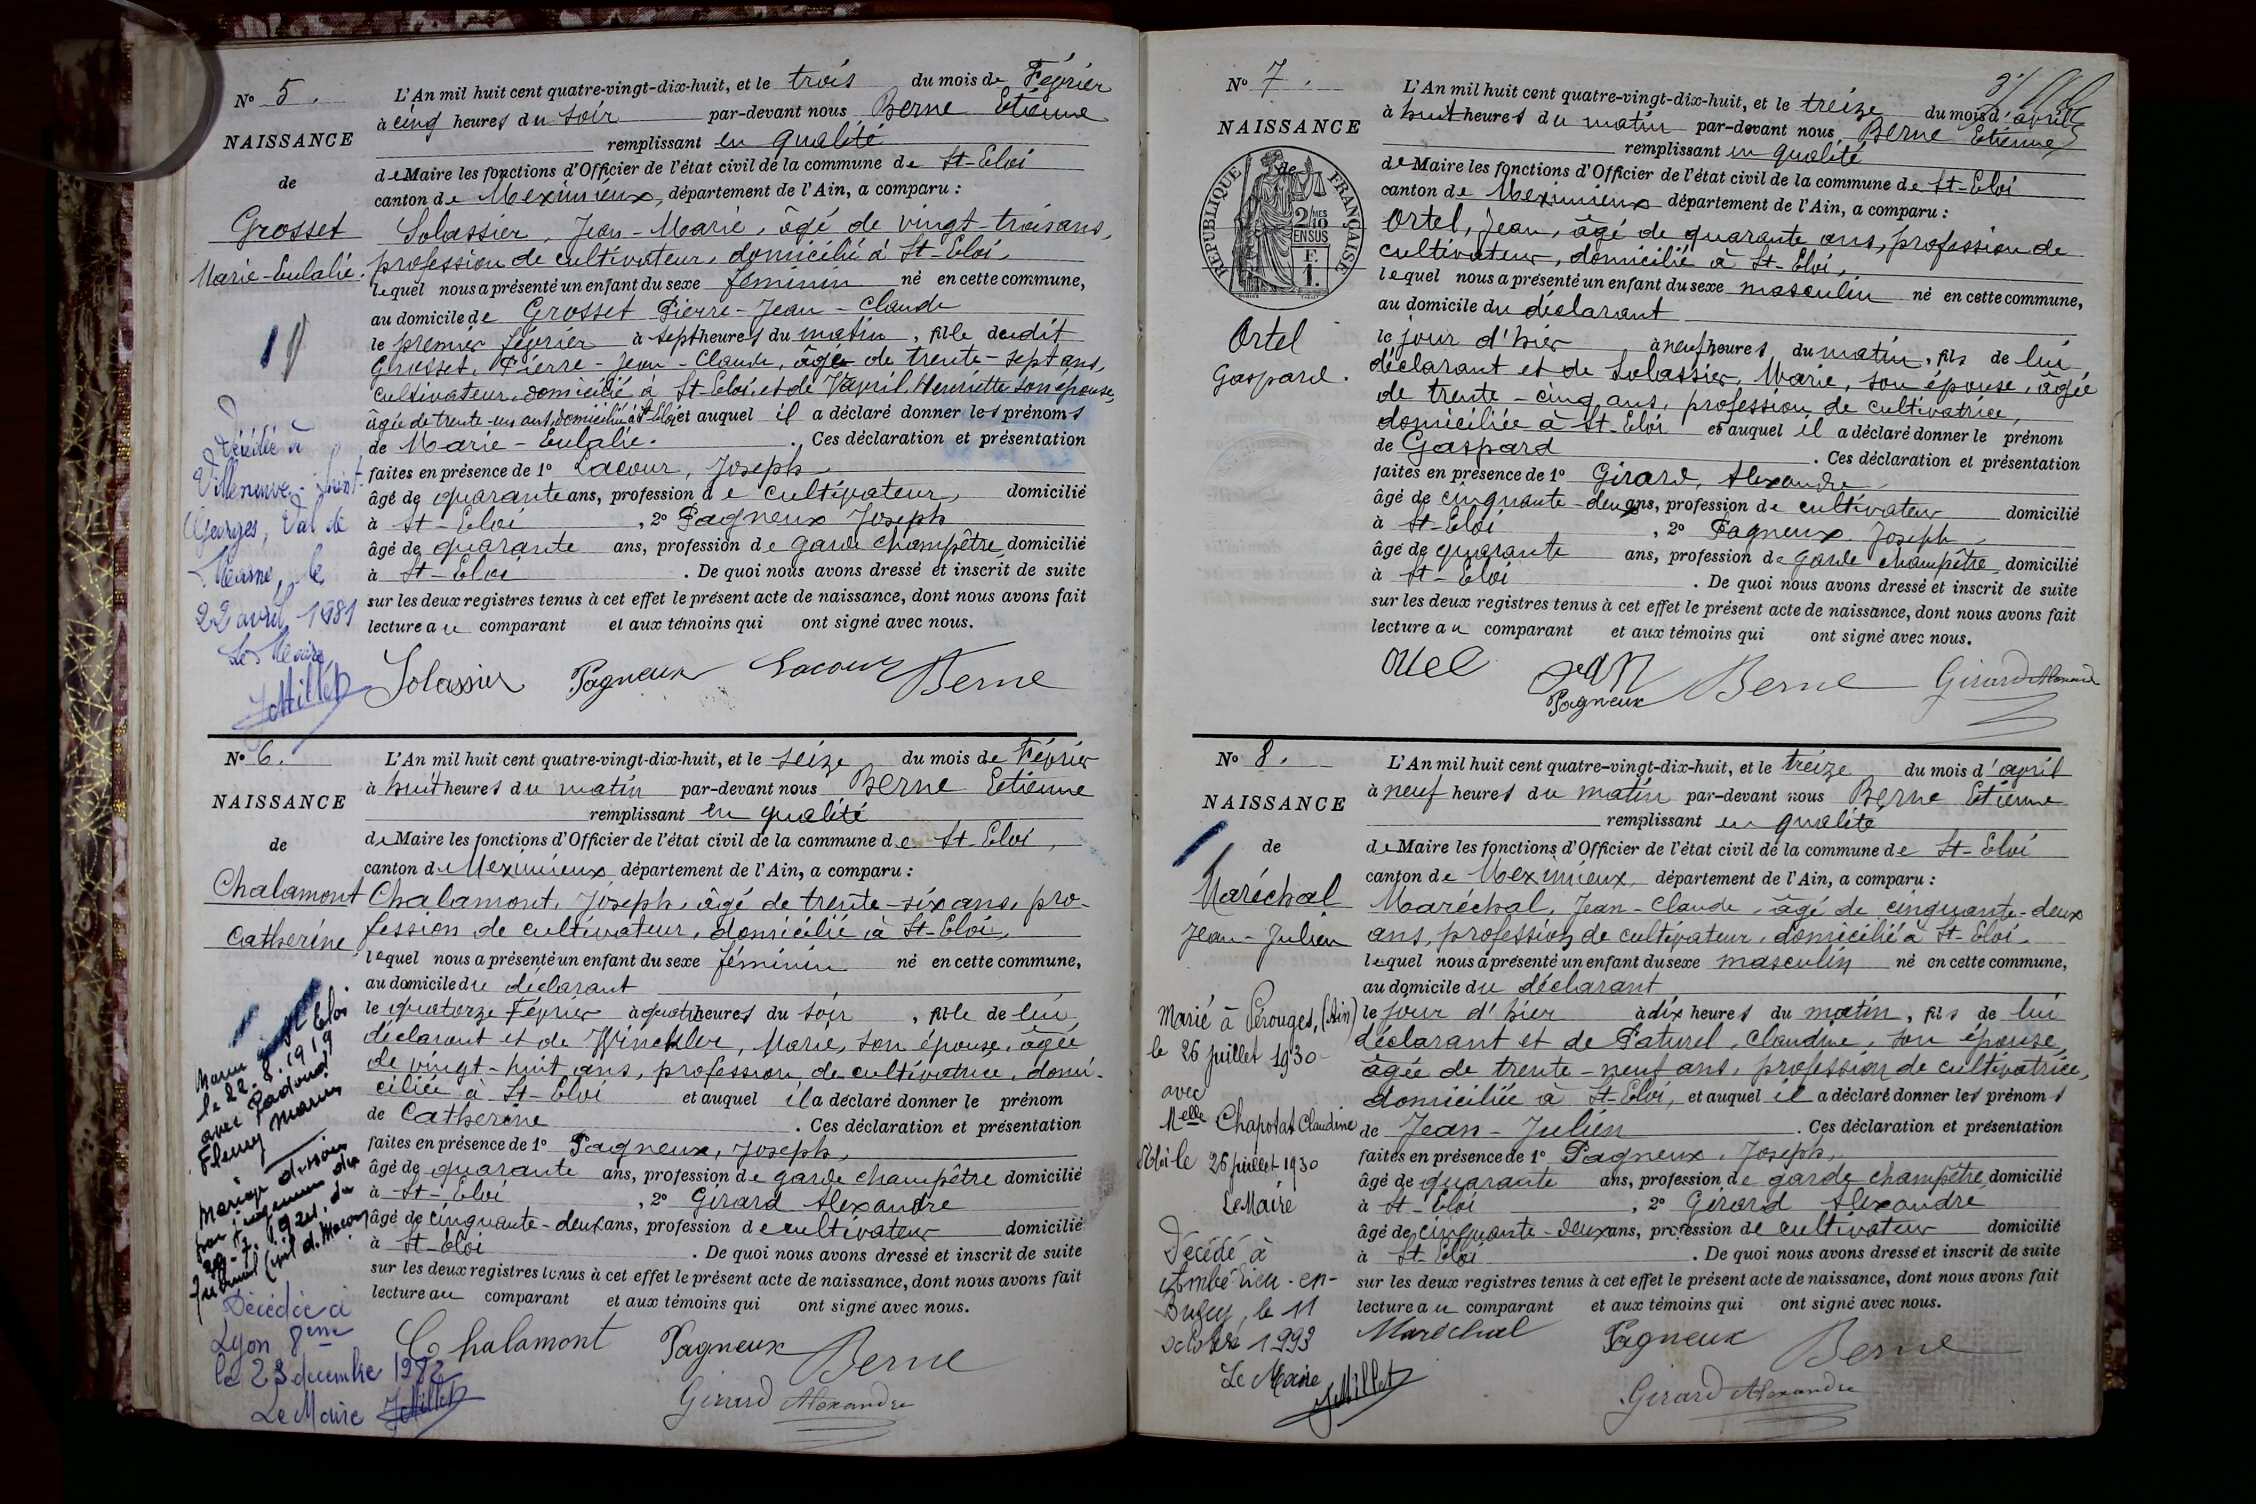 N° 5.
NAISSANCE
de
Grosset
Marie-Eulalie.
Décédée à
Villeneuve-Saint-
Georges, Val de
Marne, le
22 avril 1981
Le Maire
L'An mil huit cent quatre-vingt-dix-huit, et le trois du mois de Février
à cinq heures du soir par-devant nous Berne Etienne
remplissant en qualité
de Maire les fonctions d'Officier de l'état civil de la commune de St-Eloi
canton de Meximieux, département de l'Ain, a comparu :
Solassier, Jean-Marie, âgé de vingt-trois ans,
profession de cultivateur, domicilié à St-Eloi,
lequel nous a présenté un enfant du sexe féminin né en cette commune,
au domicile de Grosset Pierre-Jean-Claude
le premier février à sept heures du matin, fille dudit
Grosset, Pierre-Jean-Claude, âgé de trente-sept ans,
cultivateur, domicilié à St-Eloi, et de Henriette son épouse,
âgée de trente-un ans, domiciliée à St Eloi et auquel il a déclaré donner les prénoms
de Marie-Eulalie. Ces déclaration et présentation
faites en présence de 1° Lacour, Joseph
âgé de quarante ans, profession de cultivateur, domicilié
à St-Eloi, 2° Pagneux Joseph
âgé de quarante ans, profession de garde champêtre, domicilié
à St-Eloi. De quoi nous avons dressé et inscrit de suite
sur les deux registres tenus à cet effet le présent acte de naissance, dont nous avons fait
lecture au comparant et aux témoins qui ont signé avec nous.
Solassier Pagneux Lacour Berne
N° 6.
NAISSANCE
de
Chalamont
Catherine
Marié à St Eloi
le 22.8.1919
avec Padoud
Fleury Marius
Mariage dissous
par jugement du
29-7-1921, du
Tribunal Civil de Macon
Décédée à
Lyon 8ème
le 23 décembre 1982
Le Maire
L'An mil huit cent quatre-vingt-dix-huit, et le seize du mois de Février
à huit heures du matin par-devant nous Berne Etienne
remplissant en qualité
de Maire les fonctions d'Officier de l'état civil de la commune de St-Eloi,
canton de Meximieux département de l'Ain, a comparu :
Chalamont, Joseph, âgé de trente-six ans, pro-
fession de cultivateur, domicilié à St-Eloi,
lequel nous a présenté un enfant du sexe féminin né en cette commune,
au domicile du déclarant
le quatorze Février à quatre heures du soir, fille de lui
déclarant et de Winckler, Marie, son épouse, âgée
de vingt-huit ans, profession de cultivatrice, domi-
ciliée à St-Eloi et auquel il a déclaré donner le prénom
de Catherine. Ces déclaration et présentation
faites en présence de 1° Pagneux, Joseph,
âgé de quarante ans, profession de garde champêtre domicilié
à St-Eloi, 2° Girard Alexandre
âgé de cinquante-deux ans, profession de cultivateur domicilié
à St-Eloi. De quoi nous avons dressé et inscrit de suite
sur les deux registres tenus à cet effet le présent acte de naissance, dont nous avons fait
lecture au comparant et aux témoins qui ont signé avec nous.
Chalamont Pagneux Berne
Girard Alexandre
N° 7.
NAISSANCE
de
RÉPUBLIQUE FRANÇAISE
2/10 MES
EN SUS
F.
1.
Ortel
Gaspard.
L'An mil huit cent quatre-vingt-dix-huit, et le treize du mois d'avril
à huit heures du matin par-devant nous Berne Etienne,
remplissant en qualité
de Maire les fonctions d'Officier de l'état civil de la commune de St-Eloi
canton de Meximieux département de l'Ain, a comparu :
Ortel, Jean, âgé de quarante ans, profession de
cultivateur, domicilié à St-Eloi,
lequel nous a présenté un enfant du sexe masculin né en cette commune,
au domicile du déclarant
le jour d'hier à neuf heures du matin, fils de lui
déclarant et de Solassier, Marie, son épouse, âgée
de trente-cinq ans, profession de cultivatrice,
domiciliée à St-Eloi et auquel il a déclaré donner le prénom
de Gaspard. Ces déclaration et présentation
faites en présence de 1° Girard, Alexandre
âgé de cinquante-deux ans, profession de cultivateur domicilié
à St-Eloi, 2° Pagneux Joseph,
âgé de quarante ans, profession de garde champêtre, domicilié
à St-Eloi. De quoi nous avons dressé et inscrit de suite
sur les deux registres tenus à cet effet le présent acte de naissance, dont nous avons fait
lecture au comparant et aux témoins qui ont signé avec nous.
Ortel Jean
Pagneux Berne Girard Alexandre
N° 8.
NAISSANCE
de
Maréchal
Jean-Julien
Marié à Pérouges, (Ain)
le 26 juillet 1930
avec
Melle Chapotat Claudine
St Eloi le 26 juillet 1930
Le Maire
Décédé à
Ambérieu-en-
Bugey, le 11
octobre 1993
Le Maire
L'An mil huit cent quatre-vingt-dix-huit, et le treize du mois d'avril
à neuf heures du matin par-devant nous Berne Etienne
remplissant en qualité
de Maire les fonctions d'Officier de l'état civil de la commune de St-Eloi
canton de Meximieux, département de l'Ain, a comparu :
Maréchal, Jean-Claude, âgé de cinquante-deux
ans, profession de cultivateur, domicilié à St-Eloi,
lequel nous a présenté un enfant du sexe masculin né en cette commune,
au domicile du déclarant
le jour d'hier à dix heures du matin, fils de lui
déclarant et de Paturel, Claudine, son épouse,
âgée de trente-neuf ans, profession de cultivatrice,
domiciliée à St-Eloi, et auquel il a déclaré donner les prénoms
de Jean-Julien. Ces déclaration et présentation
faites en présence de 1° Pagneux, Joseph,
âgé de quarante ans, profession de garde champêtre, domicilié
à St-Eloi, 2° Girard Alexandre
âgé de cinquante-deux ans, profession de cultivateur domicilié
à St-Eloi. De quoi nous avons dressé et inscrit de suite
sur les deux registres tenus à cet effet le présent acte de naissance, dont nous avons fait
lecture au comparant et aux témoins qui ont signé avec nous.
Maréchal Pagneux Berne
Girard Alexandre